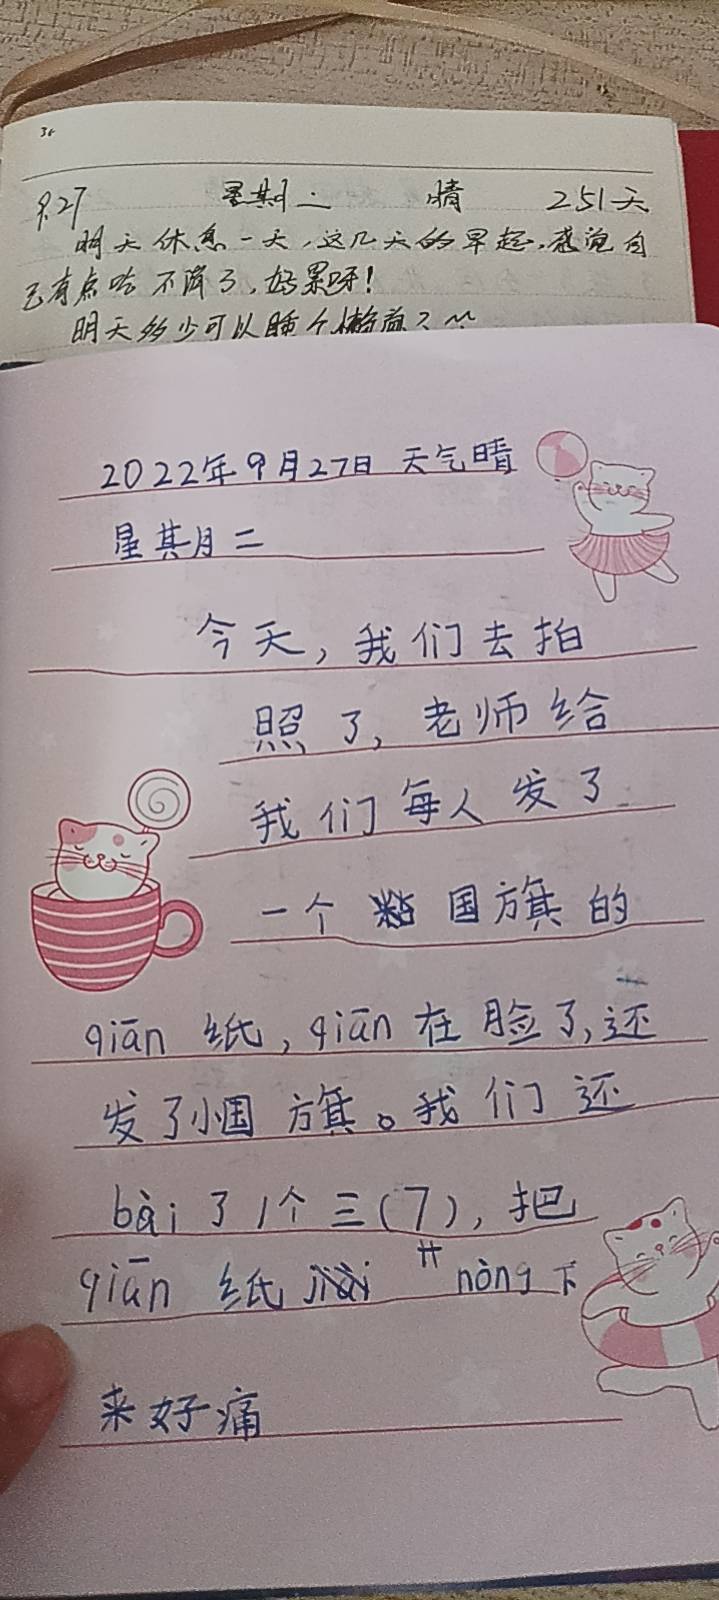 36
9.27 星期二 晴 251天
明天休息一天，这几天的早起，感觉自
己有点吃不消了，好累呀！
明天多少可以睡个懒觉了
2022年9月27日 天气晴
星期二
今天，我们去拍
照了，老师给
我们每人发了
一个 国旗的
qiān 纸，qiān 在脸了，还
发了小国旗。我们还
bài了1个三(7)，把
qiān 纸 nòng下
来好痛